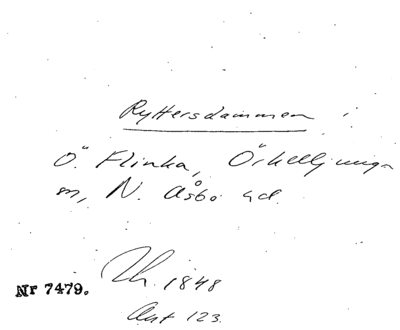 Ryttersdammen
Ö. Flinka, Örkelljunga
sn, N. Åsbo hd.
Nr 7479.
1848
Ant 123.